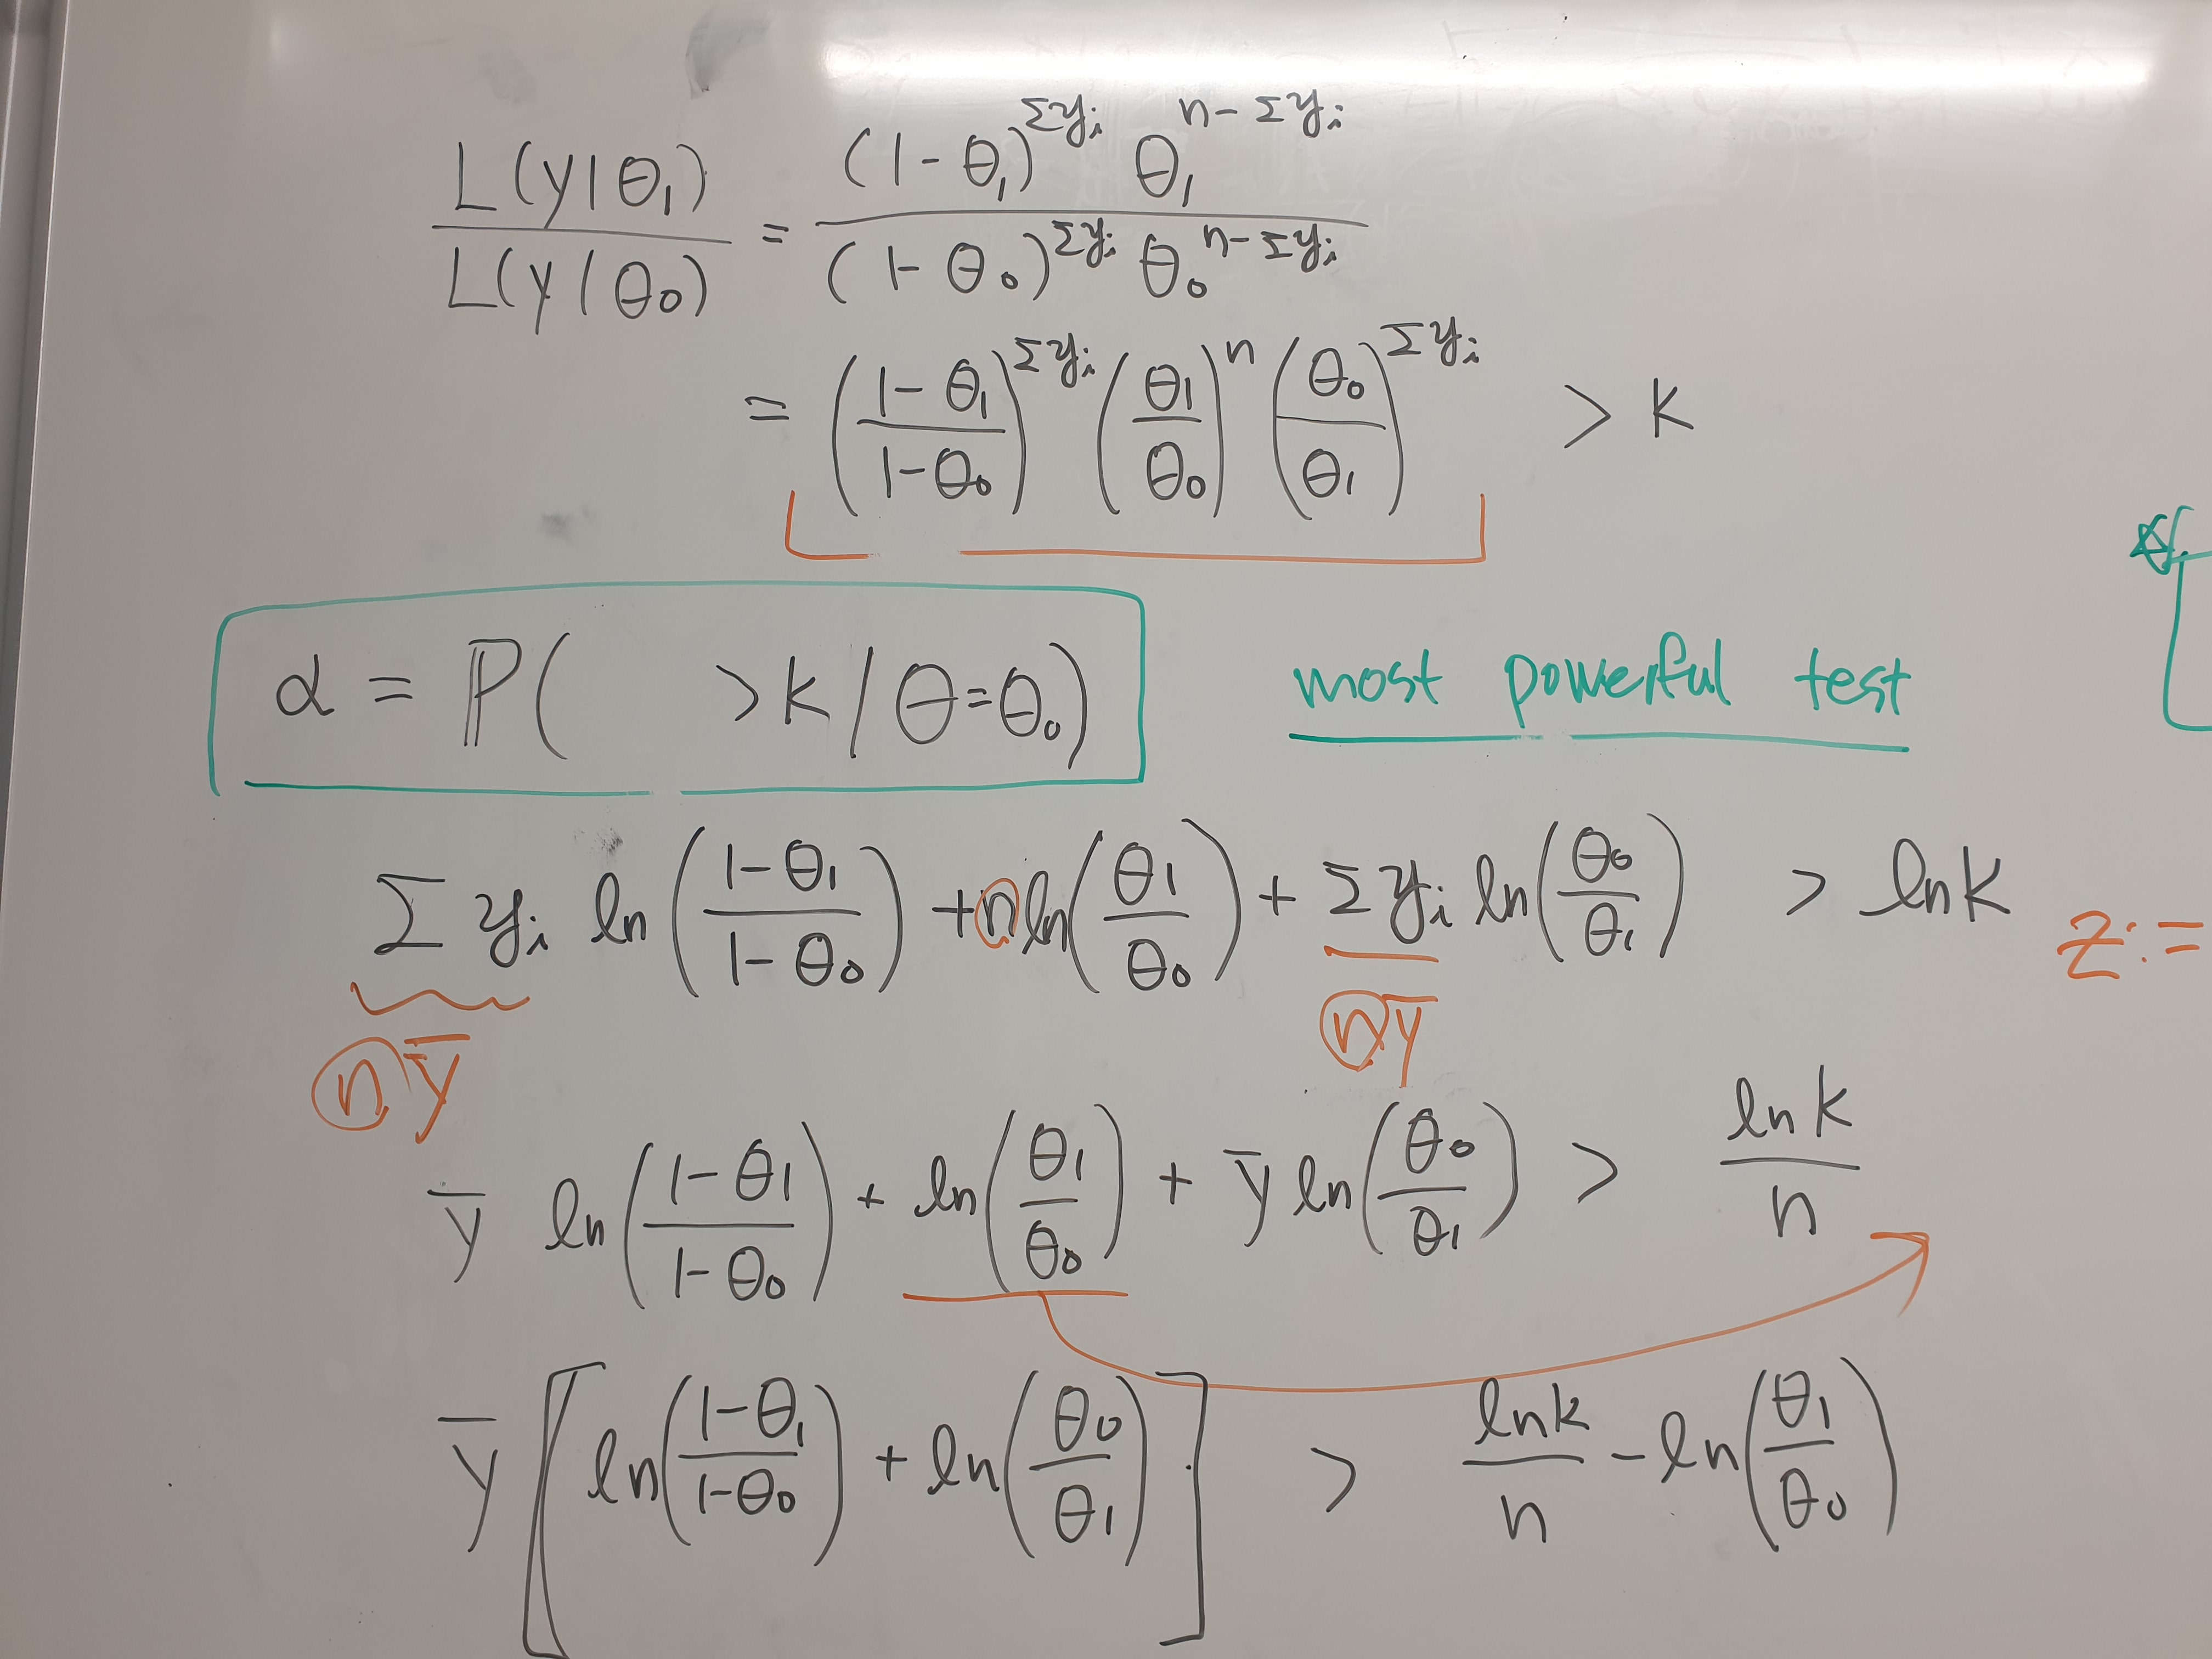 L(y|θ₁) / L(y|θ₀) = (1-θ₁)^{Σyᵢ} θ₁^{n-Σyᵢ} / (1-θ₀)^{Σyᵢ} θ₀^{n-Σyᵢ}
= ((1-θ₁)/(1-θ₀))^{Σyᵢ} (θ₁/θ₀)^n (θ₀/θ₁)^{Σyᵢ} > k
α = P(      > k | θ=θ₀)
most powerful test
Σ yᵢ ln((1-θ₁)/(1-θ₀)) + n ln(θ₁/θ₀) + Σ yᵢ ln(θ₀/θ₁) > ln k
z :=
n ȳ
n ȳ
ȳ ln((1-θ₁)/(1-θ₀)) + ln(θ₁/θ₀) + ȳ ln(θ₀/θ₁) > ln k / n
ȳ [ln((1-θ₁)/(1-θ₀)) + ln(θ₀/θ₁)] > ln k / n - ln(θ₁/θ₀)